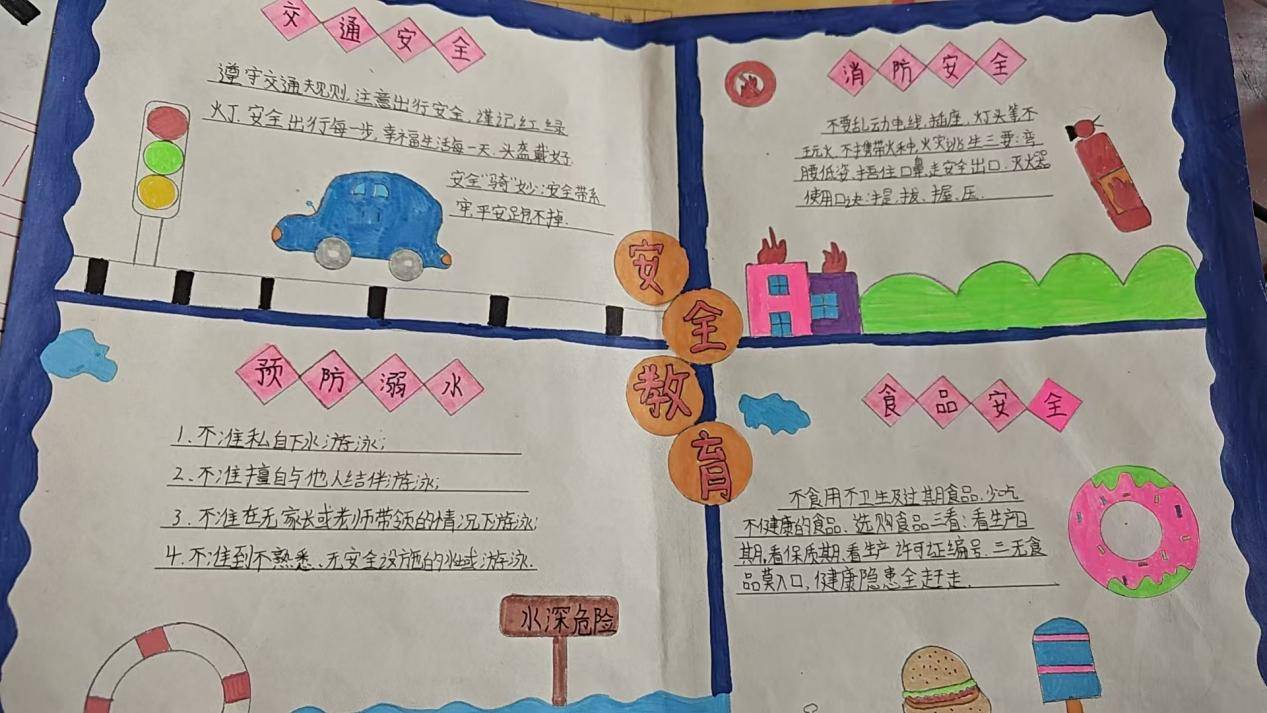 交通安全
遵守交通规则,注意出行安全,谨记红绿
灯,安全出行每一步,幸福生活每一天,头盔戴好
安全"骑"妙:安全带系
牢,平安
不掉.
消防安全
不要乱动电线,插座,灯头等不
玩火,不携带火种,火灾逃生三要:弯
腰低姿,捂住口鼻,走安全出口,灭火器
使用口诀:提,拔,握,压.
安全教育
预防溺水
1、不准私自下水游泳;
2、不准擅自与他人结伴游泳;
3、不准在无家长或老师带领的情况下游泳;
4、不准到不熟悉、无安全设施的水域游泳.
水深危险
食品安全
不食用不卫生及过期食品,少吃
不健康的食品、选购食品三看:看生产日
期,看保质期,看生产许可证编号.三无食
品莫入口,健康隐患全赶走.